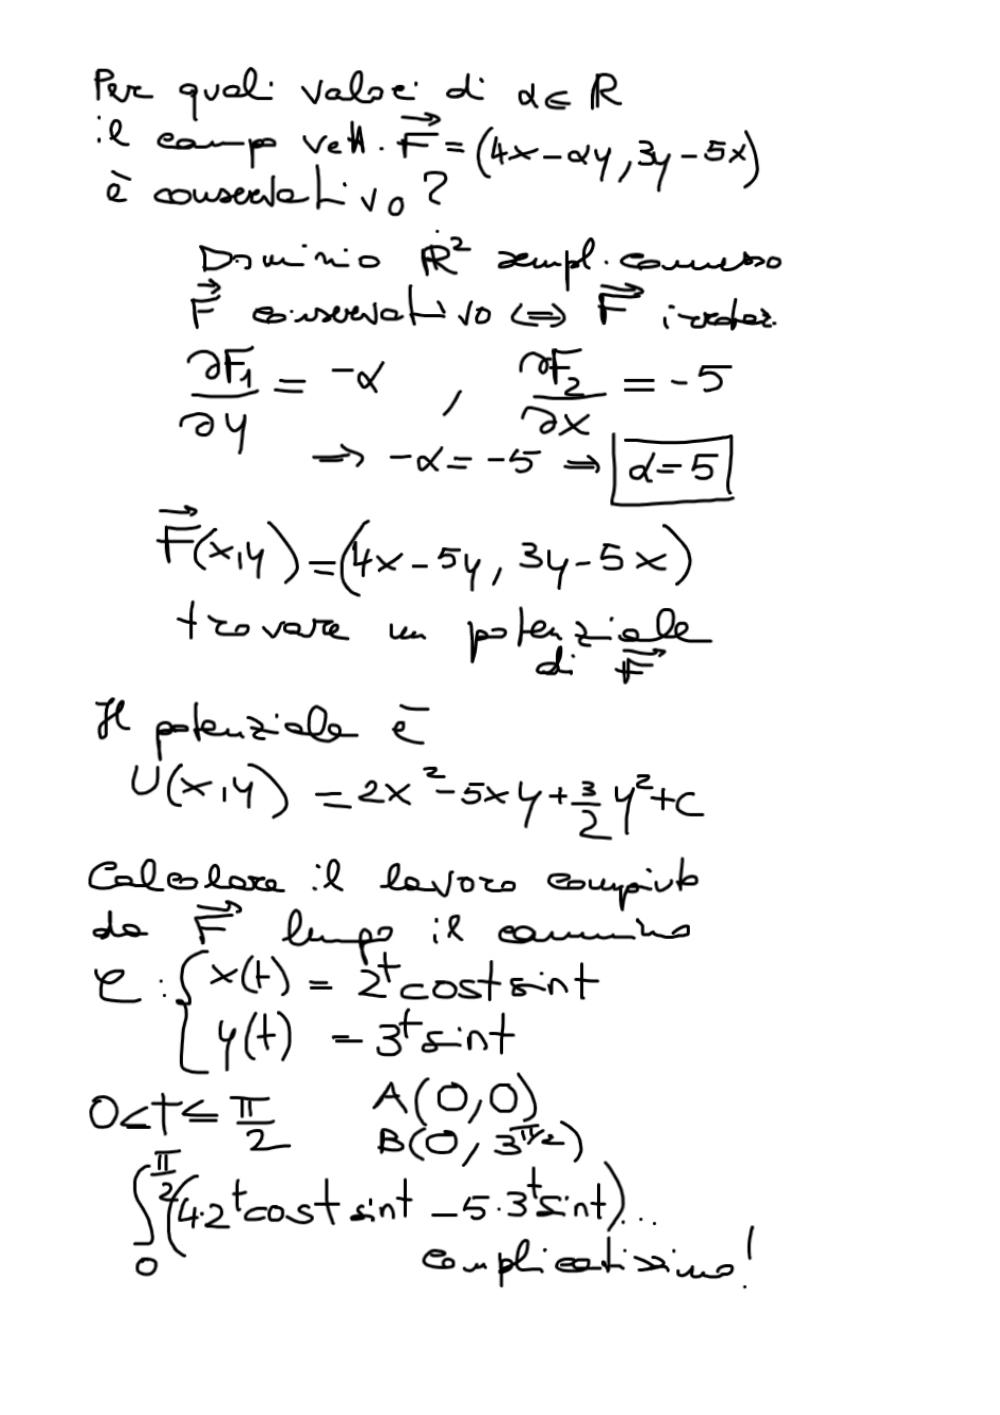 Per quali valori di α∈ℝ
il campo vett. F⃗=(4x-αy, 3y-5x)
è conservativo?
Dominio ℝ² sempl. connesso
F⃗ conservativo ⟺ F⃗ irrotaz.
∂F₁/∂y = -α , ∂F₂/∂x = -5
⟹ -α = -5 ⟹ α=5
F⃗(x,y)=(4x-5y, 3y-5x)
trovare un potenziale
di F⃗
Il potenziale è
U(x,y) = 2x²-5xy+3/2y²+c
Calcolare il lavoro compiuto
da F⃗ lungo il cammino
C: { x(t) = 2^t cost sint
y(t) = 3^t sint
0<t≤π/2 A(0,0)
B(0, 3^π/2)
∫₀^π/2 (4·2^t cost sint -5·3^t sint)...
complicatissimo!